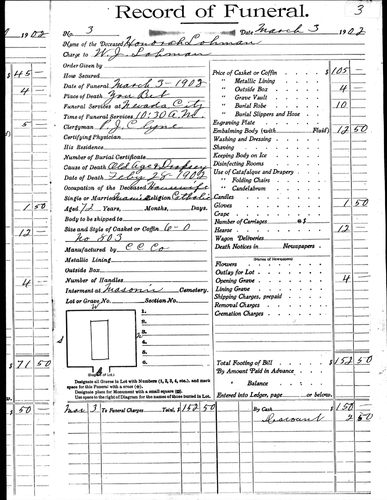 Record of Funeral.
3
1902
No. 3 Date March 3 1902
Name of the Deceased Honorah Lohman
Charge to W. J. Lohman
Order Given by
Hour Secured
Date of Funeral March 3 - 1902
Place of Death You Bet
Funeral Services at Nevada City
Time of Funeral Services 10:30 A.M.
Clergyman P. J. C.
Certifying Physician
His Residence
Number of Burial Certificate
Cause of Death Old Age & Dropsy
Date of Death Feby 28 - 1902
Occupation of the Deceased Housewife
Single or Married Married Religion Catholic
Aged 72 Years, Months, Days.
Body to be shipped to
Size and Style of Casket or Coffin 6-0
No 803
Manufactured by C C Co
Metallic Lining
Outside Box
Number of Handles
Interment at Masonic Cemetery.
Lot or Grave No. Section No.
W
1.
2.
3.
4.
5.
6.
(Diagram of Lot.)
Designate all Graves in Lot with Numbers (1, 2, 3, 4, etc.), and mark
space for this Funeral with a cross (+).
Designate place for Monument with a small square (□).
Use space to the right of Diagram for the names of those buried in Lot.
Mar 3 To Funeral Charges Total, $ 152 50
Price of Casket or Coffin $ 105
" Metallic Lining
" Outside Box 4
" Grave Vault
" Burial Robe 10
" Burial Slippers and Hose
Engraving Plate
Embalming Body (with Fluid) 12 50
Washing and Dressing
Shaving
Keeping Body on Ice
Disinfecting Rooms
Use of Catafalque and Drapery
" Folding Chairs
" Candelabrum
Candles
Gloves 1 50
Crape
Number of Carriages @ $
Hearse 12
Wagon Deliveries
Death Notices in Newspapers
Flowers
Outlay for Lot
Opening Grave 4
Lining Grave
Shipping Charges, prepaid
Removal Charges
Cremation Charges
Total Footing of Bill $ 152 50
By Amount Paid in Advance
" Balance
Entered into Ledger, page or below.
By Cash 150
Discount 2 50
$ 45
4
5
1 50
12
4
$ 71 50
50